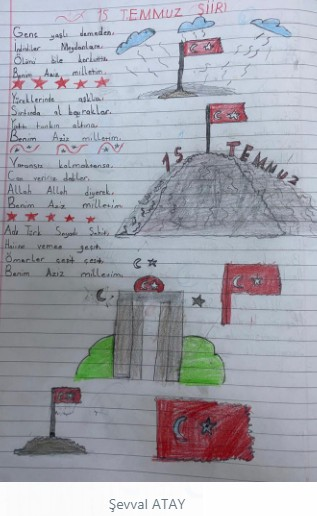 15 TEMMUZ ŞİİRİ
Genç yaşlı demeden,
İndiler Meydanlara.
Ölümü bile korkuttu
Benim Aziz milletim.
Yüreklerinde aşkla
Sırtında al bayraklar.
Yattı tankın altına
Benim Aziz milletim.
Vatansız kalmaktansa.
Can veririz dediler.
Allah Allah diyerek,
Benim Aziz milletim
Adı Türk Soyadı Şehit,
Haine vermez geçit.
Ömerler çeşit çeşit.
Benim Aziz milletim.
15 TEMMUZ
Şevval ATAY